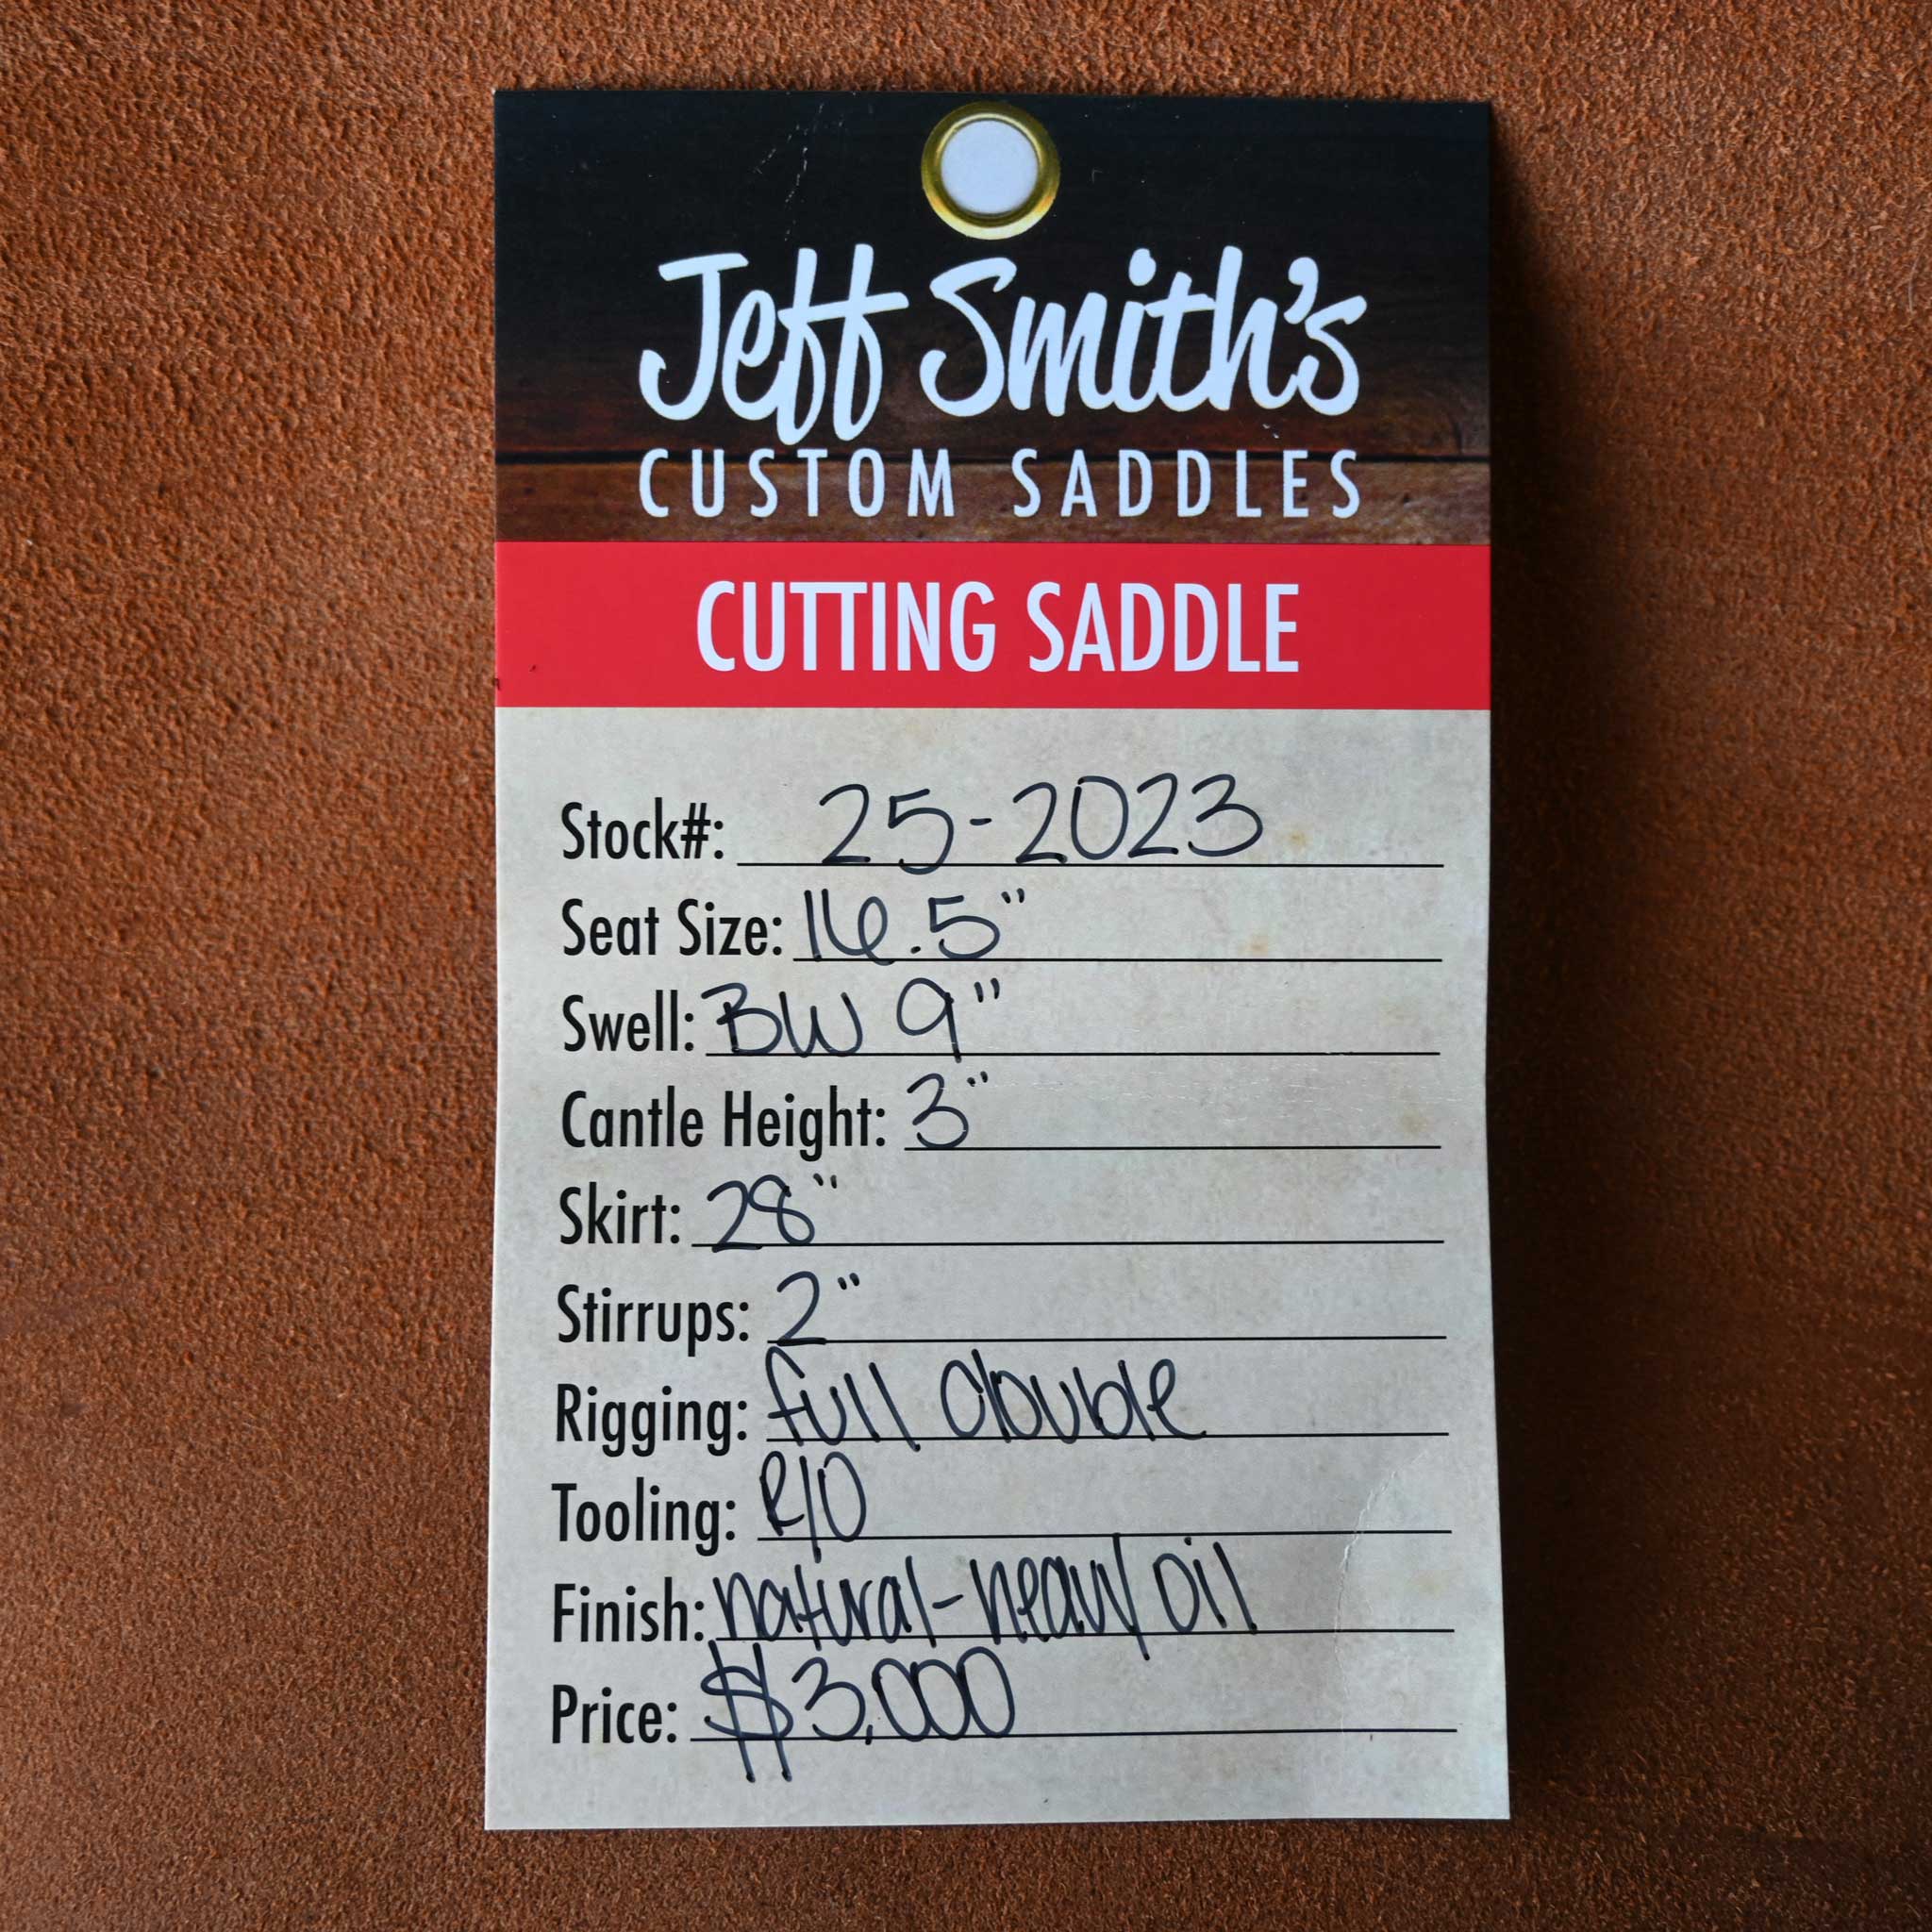 Jeff Smith's
CUSTOM SADDLES
CUTTING SADDLE
Stock#: 25-2023
Seat Size: 16.5"
Swell: BW 9"
Cantle Height: 3"
Skirt: 28"
Stirrups: 2"
Rigging: full double
Tooling: R/O
Finish: natural-heavy oil
Price: $3,000